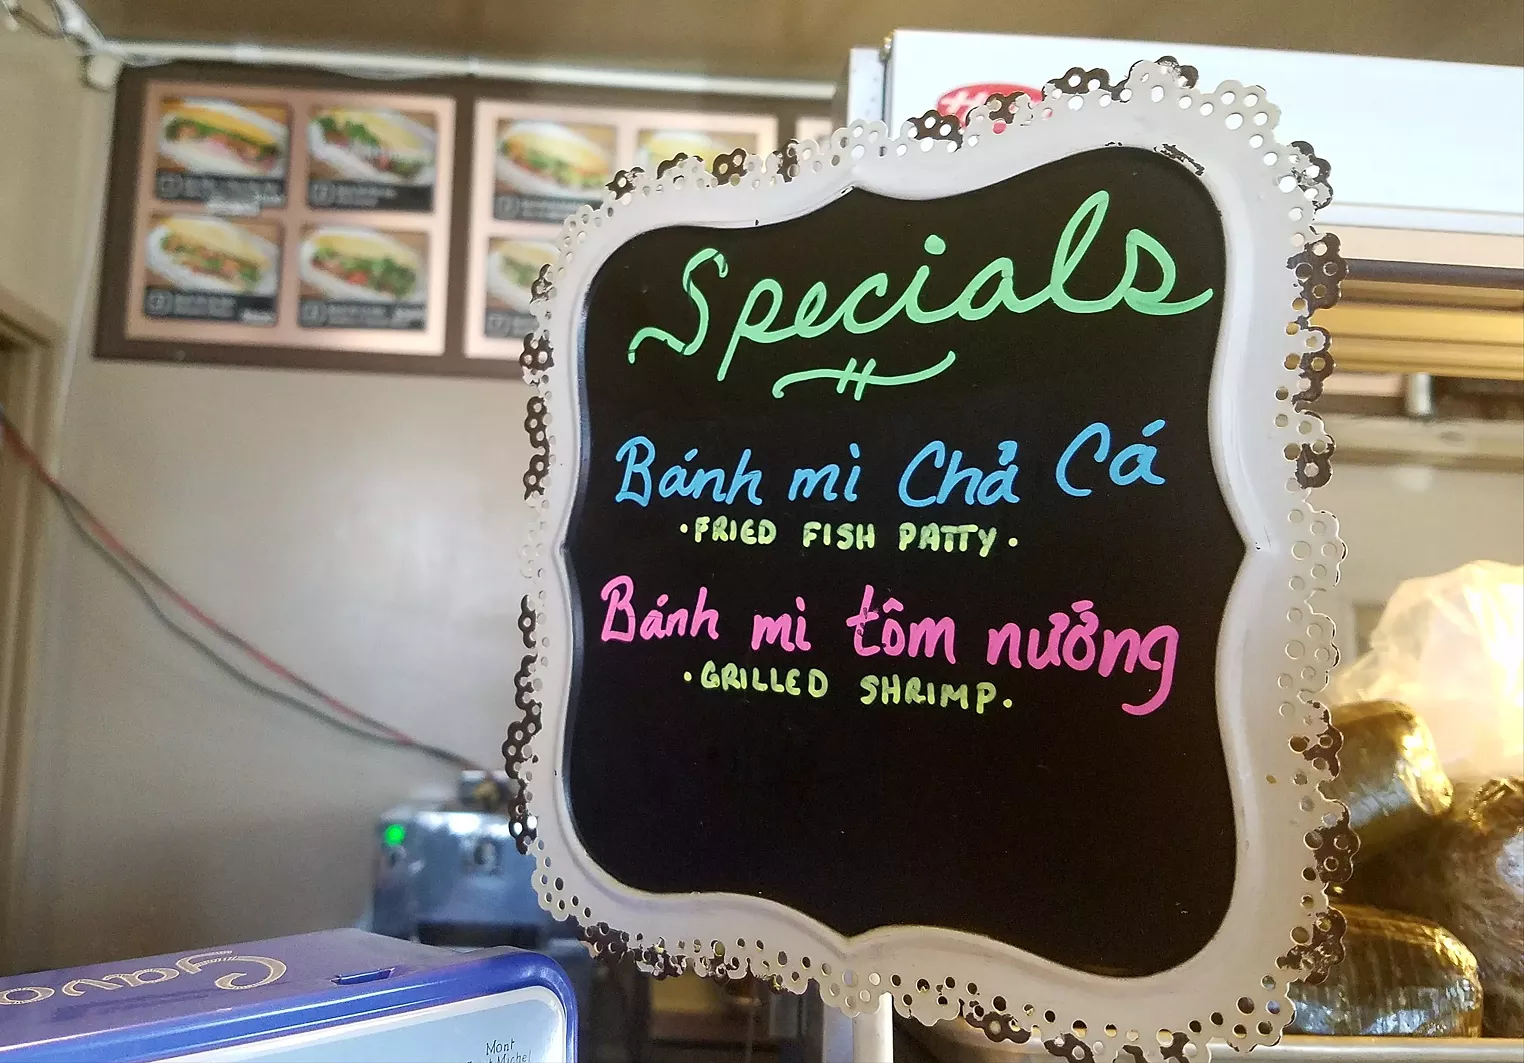 Specials
Bánh mì Chả Cá
·FRIED FISH PATTY·
Bánh mì tôm nướng
·GRILLED SHRIMP·
Mont